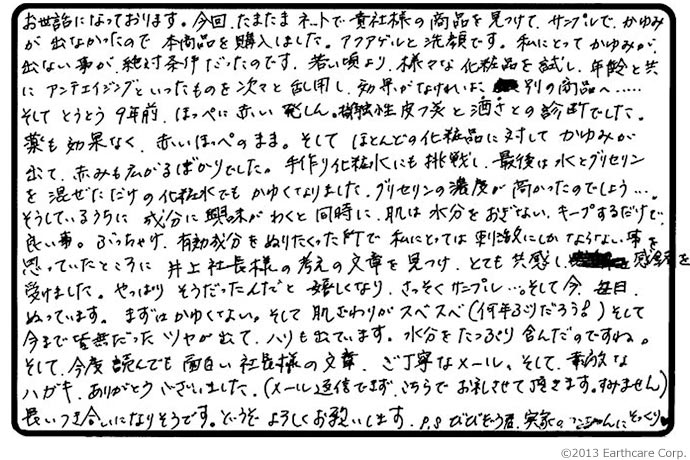 お世話になっております。今回、たまたまネットで貴社様の商品を見つけて、サンプルで、かゆみ
が出なかったので本商品を購入しました。アクアゲルと洗顔です。私にとってかゆみが、
出ない事が、絶対条件だったのです。若い頃より、様々な化粧品を試し、年齢と共
にアンチエイジングといったものを次々と乱用し、効果がなければ、別の商品へ……
そしてとうとう9年前、ほっぺに赤い発しん。接触性皮フ炎と酒さとの診断でした。
薬も効果なく、赤いほっぺのまま。そしてほとんどの化粧品に対してかゆみが
出て、赤みも広がるばかりでした。手作り化粧水にも挑戦し、最後は水とグリセリン
を混ぜただけの化粧水でもかゆくなりました。グリセリンの濃度が高かったのでしょう…。
そうしているうちに成分に興味がわくと同時に、肌は水分をおぎない、キープするだけで
良い事。ぶっちゃけ、有効成分をぬりたくった所で私にとっては刺激にしかならない事を
思っていたところに井上社長様の考えの文章を見つけ、とても共感し、感銘を
受けました。やっぱりそうだったんだと嬉しくなり、さっそくサンプル…。そして今、毎日、
ぬっています。まずはかゆくない。そして肌ざわりがスベスベ(何年ぶりだろう!)そして
今まで皆無だったツヤが出て、ハリも出ています。水分をたっぷり含んだのですね。
そして、今度読んでも面白い社長様の文章、ご丁寧なメール。そして、素敵な
ハガキ、ありがとうございました。(メール返信できず、こちらでお礼させて頂きます。すみません)
長いつき合いになりそうです。どうぞよろしくお願いします。P.S びびぞう君、実家の にそっくり
©2013 Earthcare Corp.